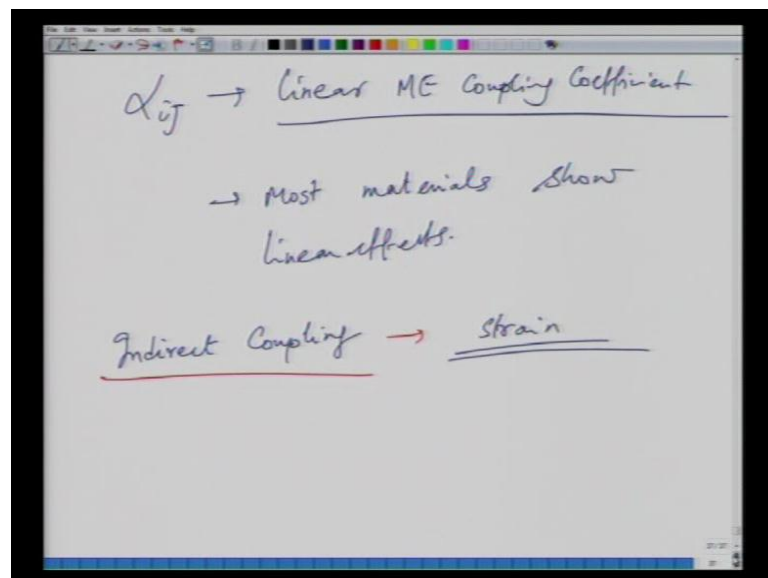 File Edit View Insert Actions Tools Help
αij → linear ME Coupling Coefficient
→ Most materials show
linear effects.
Indirect Coupling → strain
37/37
37